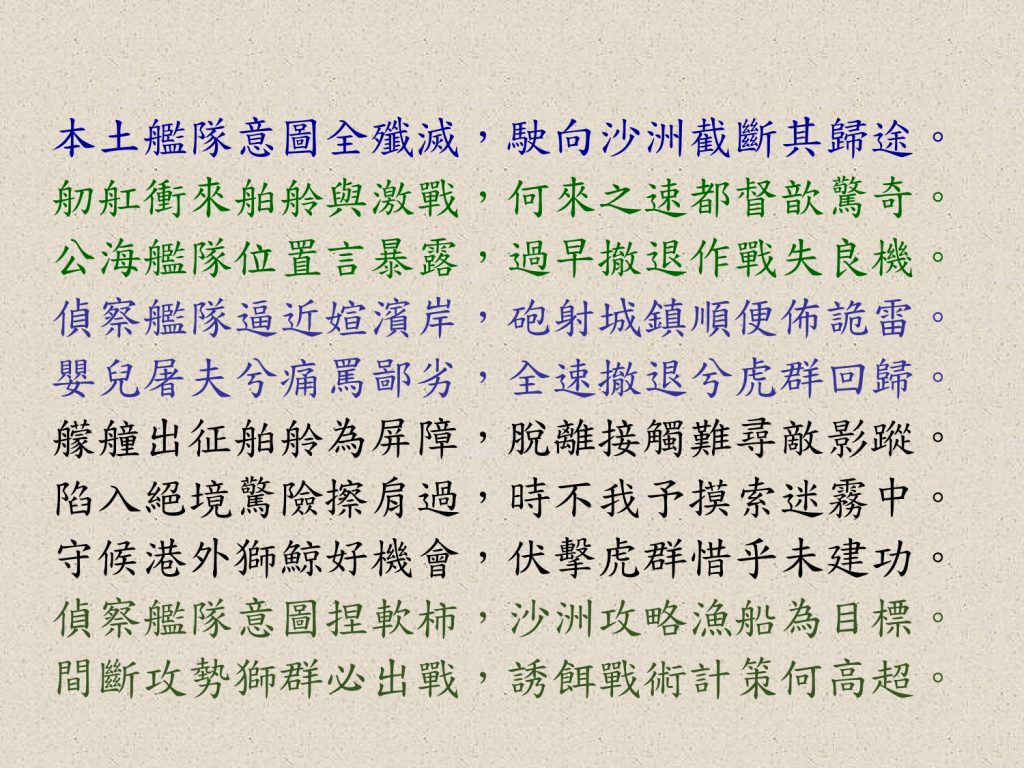 本土艦隊意圖全殲滅，駛向沙洲截斷其歸途。
舠舡衝來舶舲與激戰，何來之速都督歆驚奇。
公海艦隊位置言暴露，過早撤退作戰失良機。
偵察艦隊逼近媗濱岸，砲射城鎮順便佈詭雷。
嬰兒屠夫兮痛罵鄙劣，全速撤退兮虎群回歸。
艨艟出征舶舲為屏障，脫離接觸難尋敵影蹤。
陷入絕境驚險擦肩過，時不我予摸索迷霧中。
守候港外獅鯨好機會，伏擊虎群惜乎未建功。
偵察艦隊意圖捏軟柿，沙洲攻略漁船為目標。
間斷攻勢獅群必出戰，誘餌戰術計策何高超。